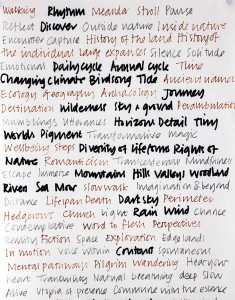 Walking Rhythm Meander Stroll Pause
Reflect Discover Outside nature Inside nature
Encounter Capture History of the land History of
the individual large expanses Silence Solitude
Emotional Daily cycle Annual cycle Time
Changing climate Birdsong Tide Ancient names
Ecology Geography Archaeology Journey
Destination wilderness Sky & ground Perambulation
Mumblings Utterances Horizon Detail Tiny
Worlds Pigment Transformative Magic
Wellbeing Steps Diversity of life forms Rights of
Nature Romanticism Transcendence Mindfulness
Escape Immerse Mountain Hills Valley Woodland
River Sea Moor Slow walk Imagination & beyond
Distance Lifespan Death Dark sky Perimeter
Hedgerows Church Light Rain Wind Chance
Contemplative Word to flesh Perspectives
Reality Fiction Space Exploration Edgelands
In motion Voice within Context Spontaneous
Mental pathways Pilgrim wandering Heart
heart Tranquility Natural breathing deep Slow
Alive Utopia of presence Commune with the essence